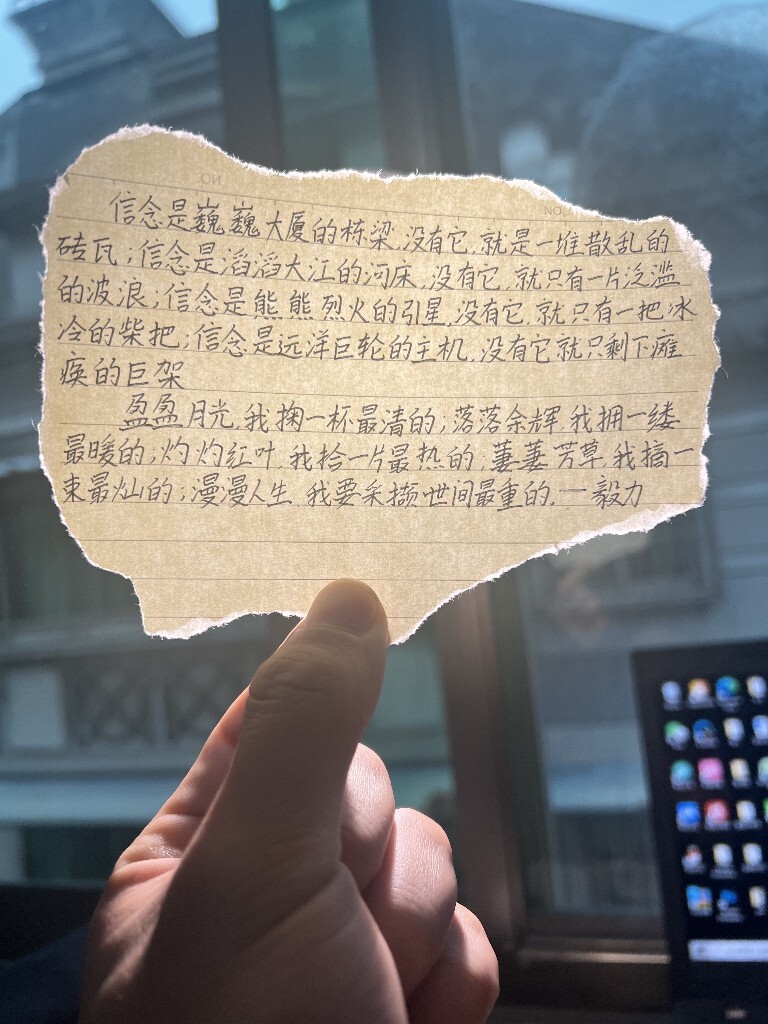 NO.
NO.
信念是巍巍大厦的栋梁,没有它,就是一堆散乱的
砖瓦;信念是滔滔大江的河床,没有它,就只有一片泛滥
的波浪;信念是熊熊烈火的引星,没有它,就只有一把冰
冷的柴把;信念是远洋巨轮的主机,没有它就只剩下瘫
痪的巨架
盈盈月光,我掬一杯最清的;落落余辉,我拥一缕
最暖的;灼灼红叶,我拾一片最热的;萋萋芳草,我摘一
束最灿的;漫漫人生,我要采撷世间最重的,一毅力